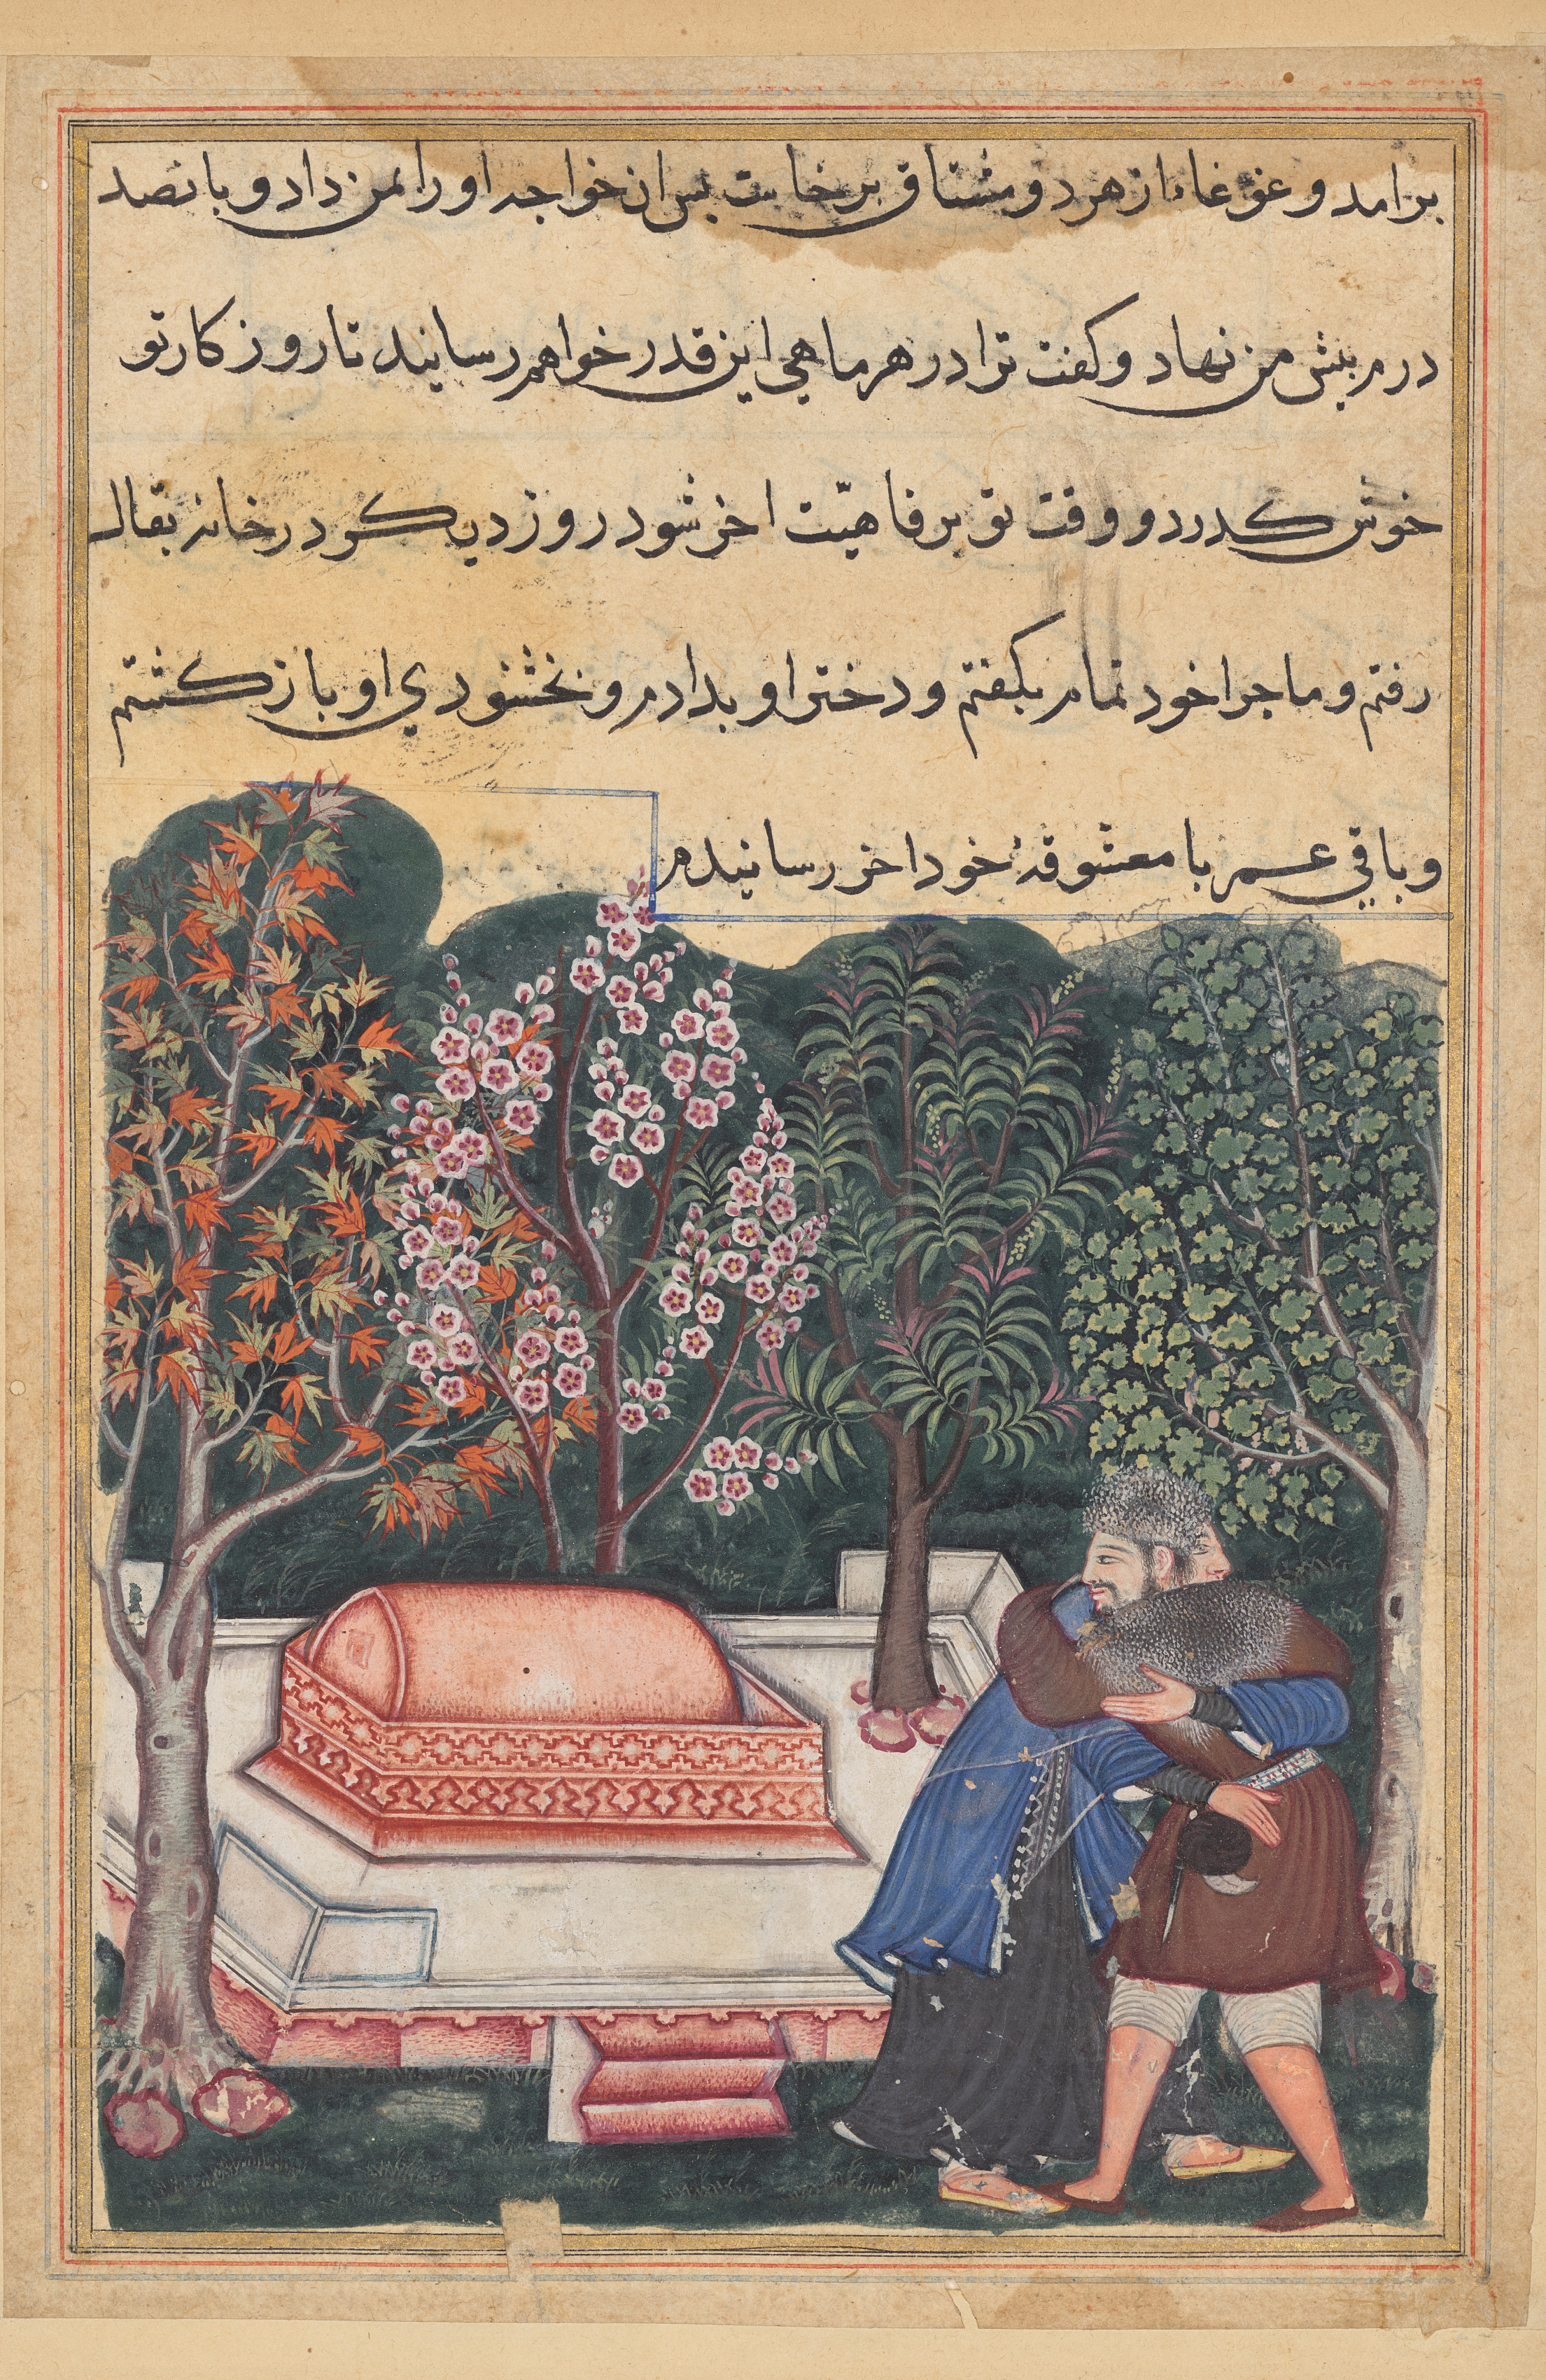 برامد و غوغا از هر دو مشتاق برخاست پس ان خواجه او را بمن داد و بانصد
درم بيش من نهاد و كفت ترا در هر ماهي اين قدر خواهم رسانيد تا روزكار تو
خوش كدرد و وقت تو برفاهيّت اخر شود روز ديكر در خانه بقال
رفتم و ماجرا خود تمام بكفتم و دختر او بدادم و بخشنودي او باز كشتم
و باقي عمر با معشوقهٔ خود اخر رسانيدم